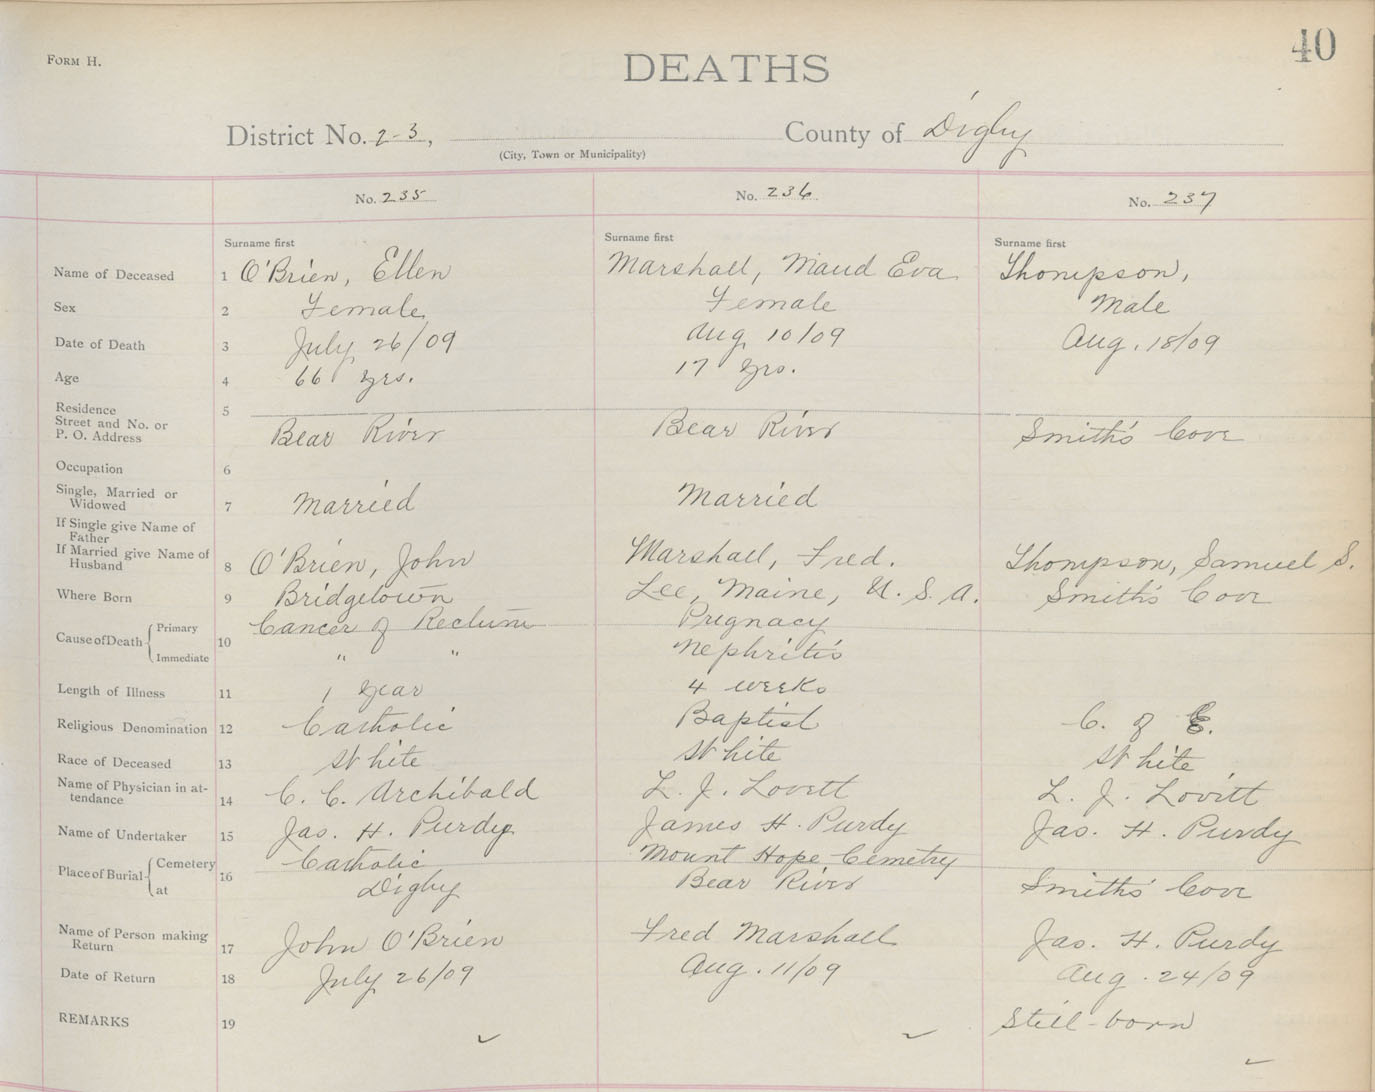 40
FORM H.
DEATHS
District No. 2-3, County of Digby
(City, Town or Municipality)
No. 235 No. 236 No. 237
Surname first Surname first Surname first
Name of Deceased 1 O'Brien, Ellen Marshall, Maud Eva Thompson,
Sex 2 Female Female Male
Date of Death 3 July 26/09 Aug 10/09 Aug. 18/09
Age 4 66 yrs. 17 yrs.
Residence 5
Street and No. or
P. O. Address Bear River Bear River Smith's Cove
Occupation 6
Single, Married or
Widowed 7 Married Married
If Single give Name of
Father
If Married give Name of
Husband 8 O'Brien, John Marshall, Fred. Thompson, Samuel S.
Where Born 9 Bridgetown Lee, Maine, U. S. A. Smith's Cove
Cause of Death 10 Primary Cancer of Rectum Pregnacy
Immediate " " Nephritis
Length of Illness 11 1 year 4 weeks
Religious Denomination 12 Catholic Baptist C. of E.
Race of Deceased 13 White White White
Name of Physician in at-
tendance 14 C. C. Archibald L. J. Lovett L. J. Lovitt
Name of Undertaker 15 Jas. H. Purdy James H. Purdy Jas. H. Purdy
Place of Burial 16 Cemetery Catholic Mount Hope Cemetry
at Digby Bear River Smith's Cove
Name of Person making
Return 17 John O'Brien Fred Marshall Jas. H. Purdy
Date of Return 18 July 26/09 Aug. 11/09 Aug. 24/09
REMARKS 19 Still-born